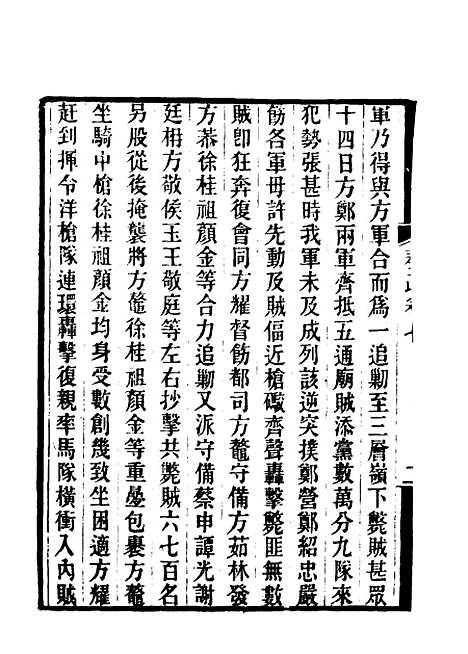 軍乃得與方軍合而爲一追勦至三層嶺下斃賊甚眾
十四日方鄭兩軍齊抵五通廟賊添黨數萬分九隊來
犯勢張甚時我軍未及成列該逆突撲鄭營鄭紹忠嚴
飭各軍毋許先動及賊偪近槍礮齊聲轟擊斃匪無數
賊卽狂奔復會同方耀督飭都司方鼇守備方茹林發
方恭徐桂祖顏金等合力追勦又派守備蔡申譚光謝
廷桁方敬侯玉王敬庭等左右抄擊共斃賊六七百名
另股從後掩襲將方鼇徐桂祖顏金等重壘包裹方鼇
坐騎中槍徐桂祖顏金均身受數創幾致坐困適方耀
赶到揮令洋槍隊連環轟擊復親率馬隊橫衝入內賊